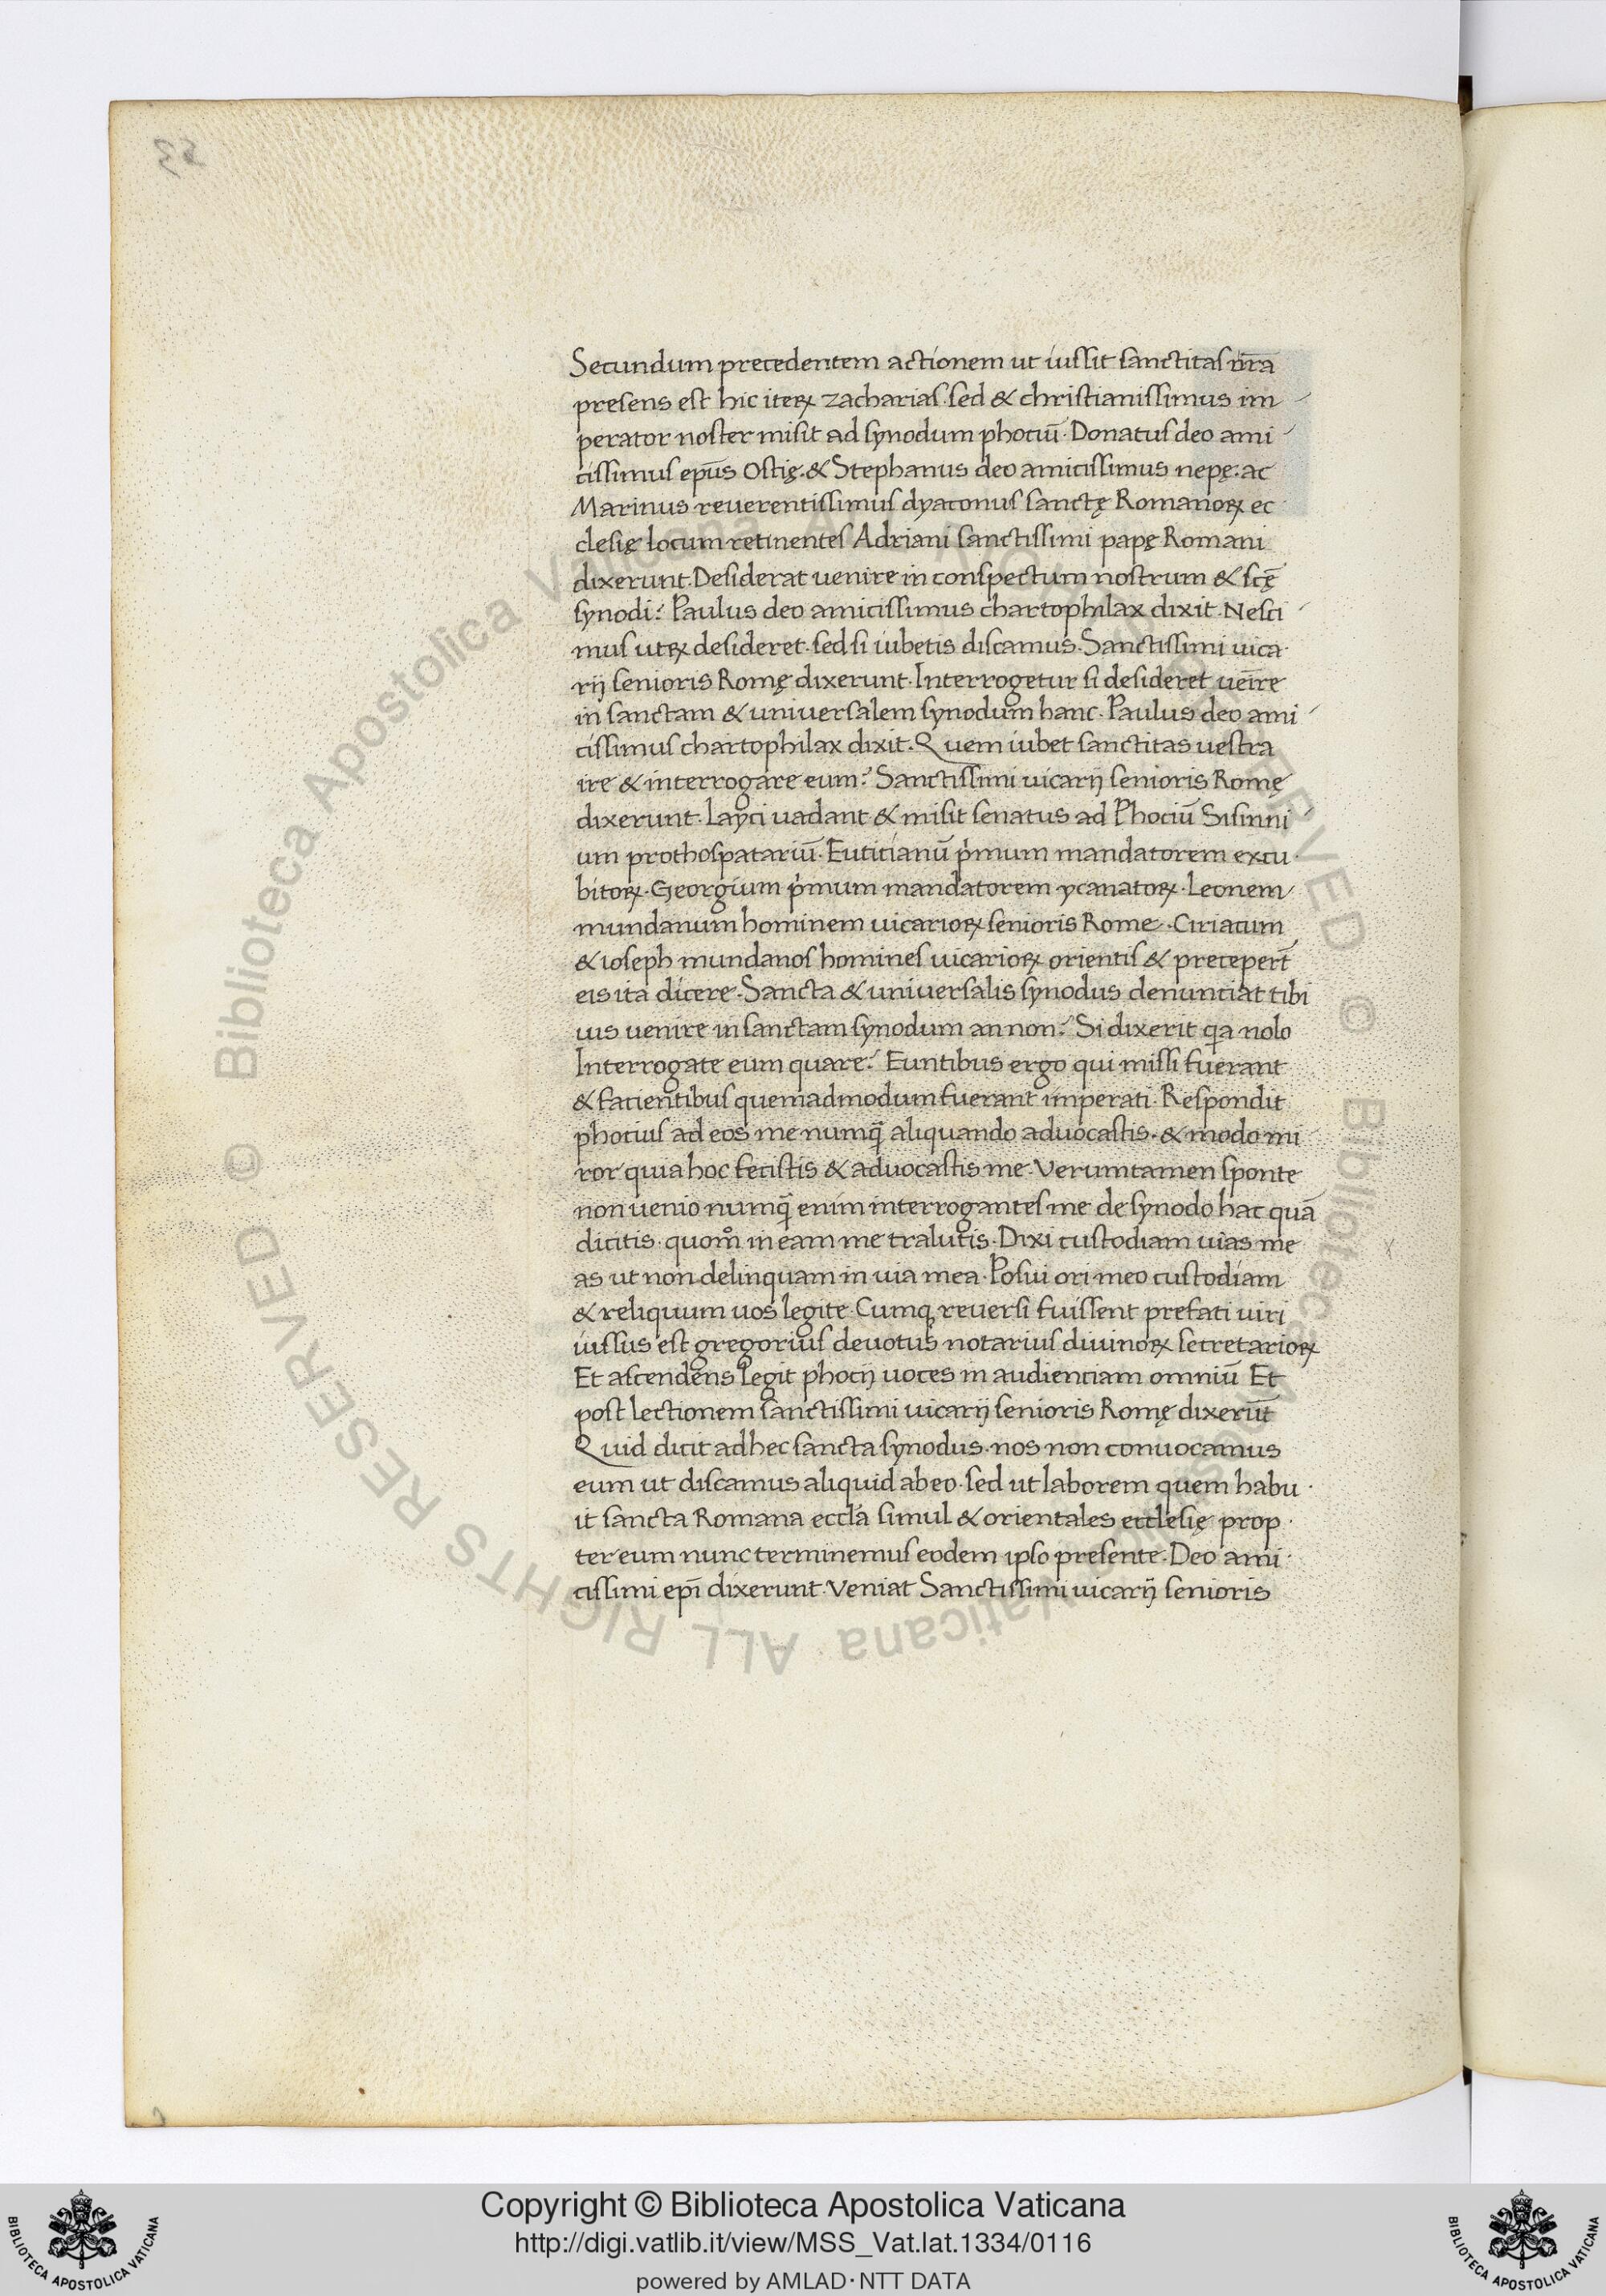 Secundum precedentem actionem ut iussit sanctitas nr̄a
presens est hic iteꝝ zacharias. sed & christianissimus im
perator noster misit ad synodum photiū. Donatus deo ami
cissimus ep̄us Ostię. & Stephanus deo amicissimus nepę: ac
Marinus reuerentissimus dyaconus sanctę Romanoꝝ ec
clesię locum retinentes Adriani sanctissimi papę Romani
dixerunt. Desiderat uenire in conspectum nostrum & scę̄
synodi? Paulus deo amicissimus chartophilax dixit. Nesci
mus utꝝ desideret. sed si iubetis discamus. Sanctissimi uica
rij senioris Romę dixerunt. Interrogetur si desideret ueīre
in sanctam & uniuersalem synodum hanc. Paulus deo ami
cissimus chartophilax dixit. Quem iubet sanctitas uestra
ire & interrogare eum? Sanctissimi uicarij senioris Romę
dixerunt. Layci uadant & misit senatus ad Phociū Sisinni
um prothospatariū. Euticianū pͥmum mandatorem excu
bitoꝝ. Georgium pͥmum mandatorem ycanatoꝝ. Leonem
mundanum hominem uicarioꝝ senioris Rome. Ciriacum
& ioseph mundanos homines uicarioꝝ orientis & precepert̄
eis ita dicere. Sancta & uniuersalis synodus denunciat tibi
uis uenire in sanctam synodum an non? Si dixerit qa nolo
Interrogate eum quare? Euntibus ergo qui missi fuerant
& facientibus quemadmodum fuerant imperati. Respondit
phocius ad eos me numq̄ aliquando aduocastis. & modo mi
ror quia hoc fecistis & aduocastis me. Verumtamen sponte
non uenio numq̄ enim interrogantes me de synodo hac quā
dicitis. quom̊ in eam me tralutis. Dixi custodiam uias me
as ut non delinquam in uia mea. Posui ori meo custodiam
& reliquum uos legite. Cumq reuersi fuissent prefati uiri
iussus est gregorius deuotus notarius diuinoꝝ secretarioꝝ
Et ascendens legit phocij uoces in audienciam omniū Et
post lectionem sanctissimi uicarij senioris Romę dixerūt
Quid dicit ad hec sancta synodus. nos non conuocamus
eum ut discamus aliquid ab eo. sed ut laborem quem habu
it sancta Romana eccl̄a simul & orientales ecclesię prop
ter eum nunc terminemus eodem ipso presente. Deo ami
cissimi ep̄i dixerunt. Veniat Sanctissimi uicarij senioris
© Biblioteca Apostolica Vaticana ALL RIGHTS RESERVED
Copyright © Biblioteca Apostolica Vaticana
http://digi.vatlib.it/view/MSS_Vat.lat.1334/0116
powered by AMLAD·NTT DATA
BIBLIOTECA APOSTOLICA VATICANA
BIBLIOTECA APOSTOLICA VATICANA